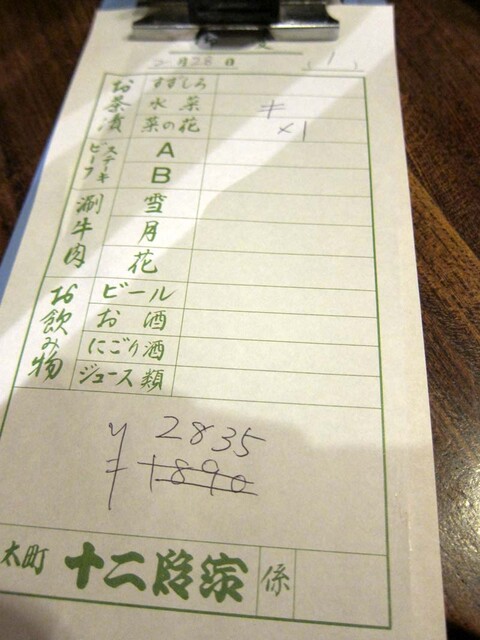 2月28日
お茶漬
すずしろ
水菜
菜の花
キ
×1
ビーフステーキ
A
B
涮牛肉
雪
月
花
お飲み物
ビール
お酒
にごり酒
ジュース類
¥ 2835
¥ 1890
太町 十二段家 係